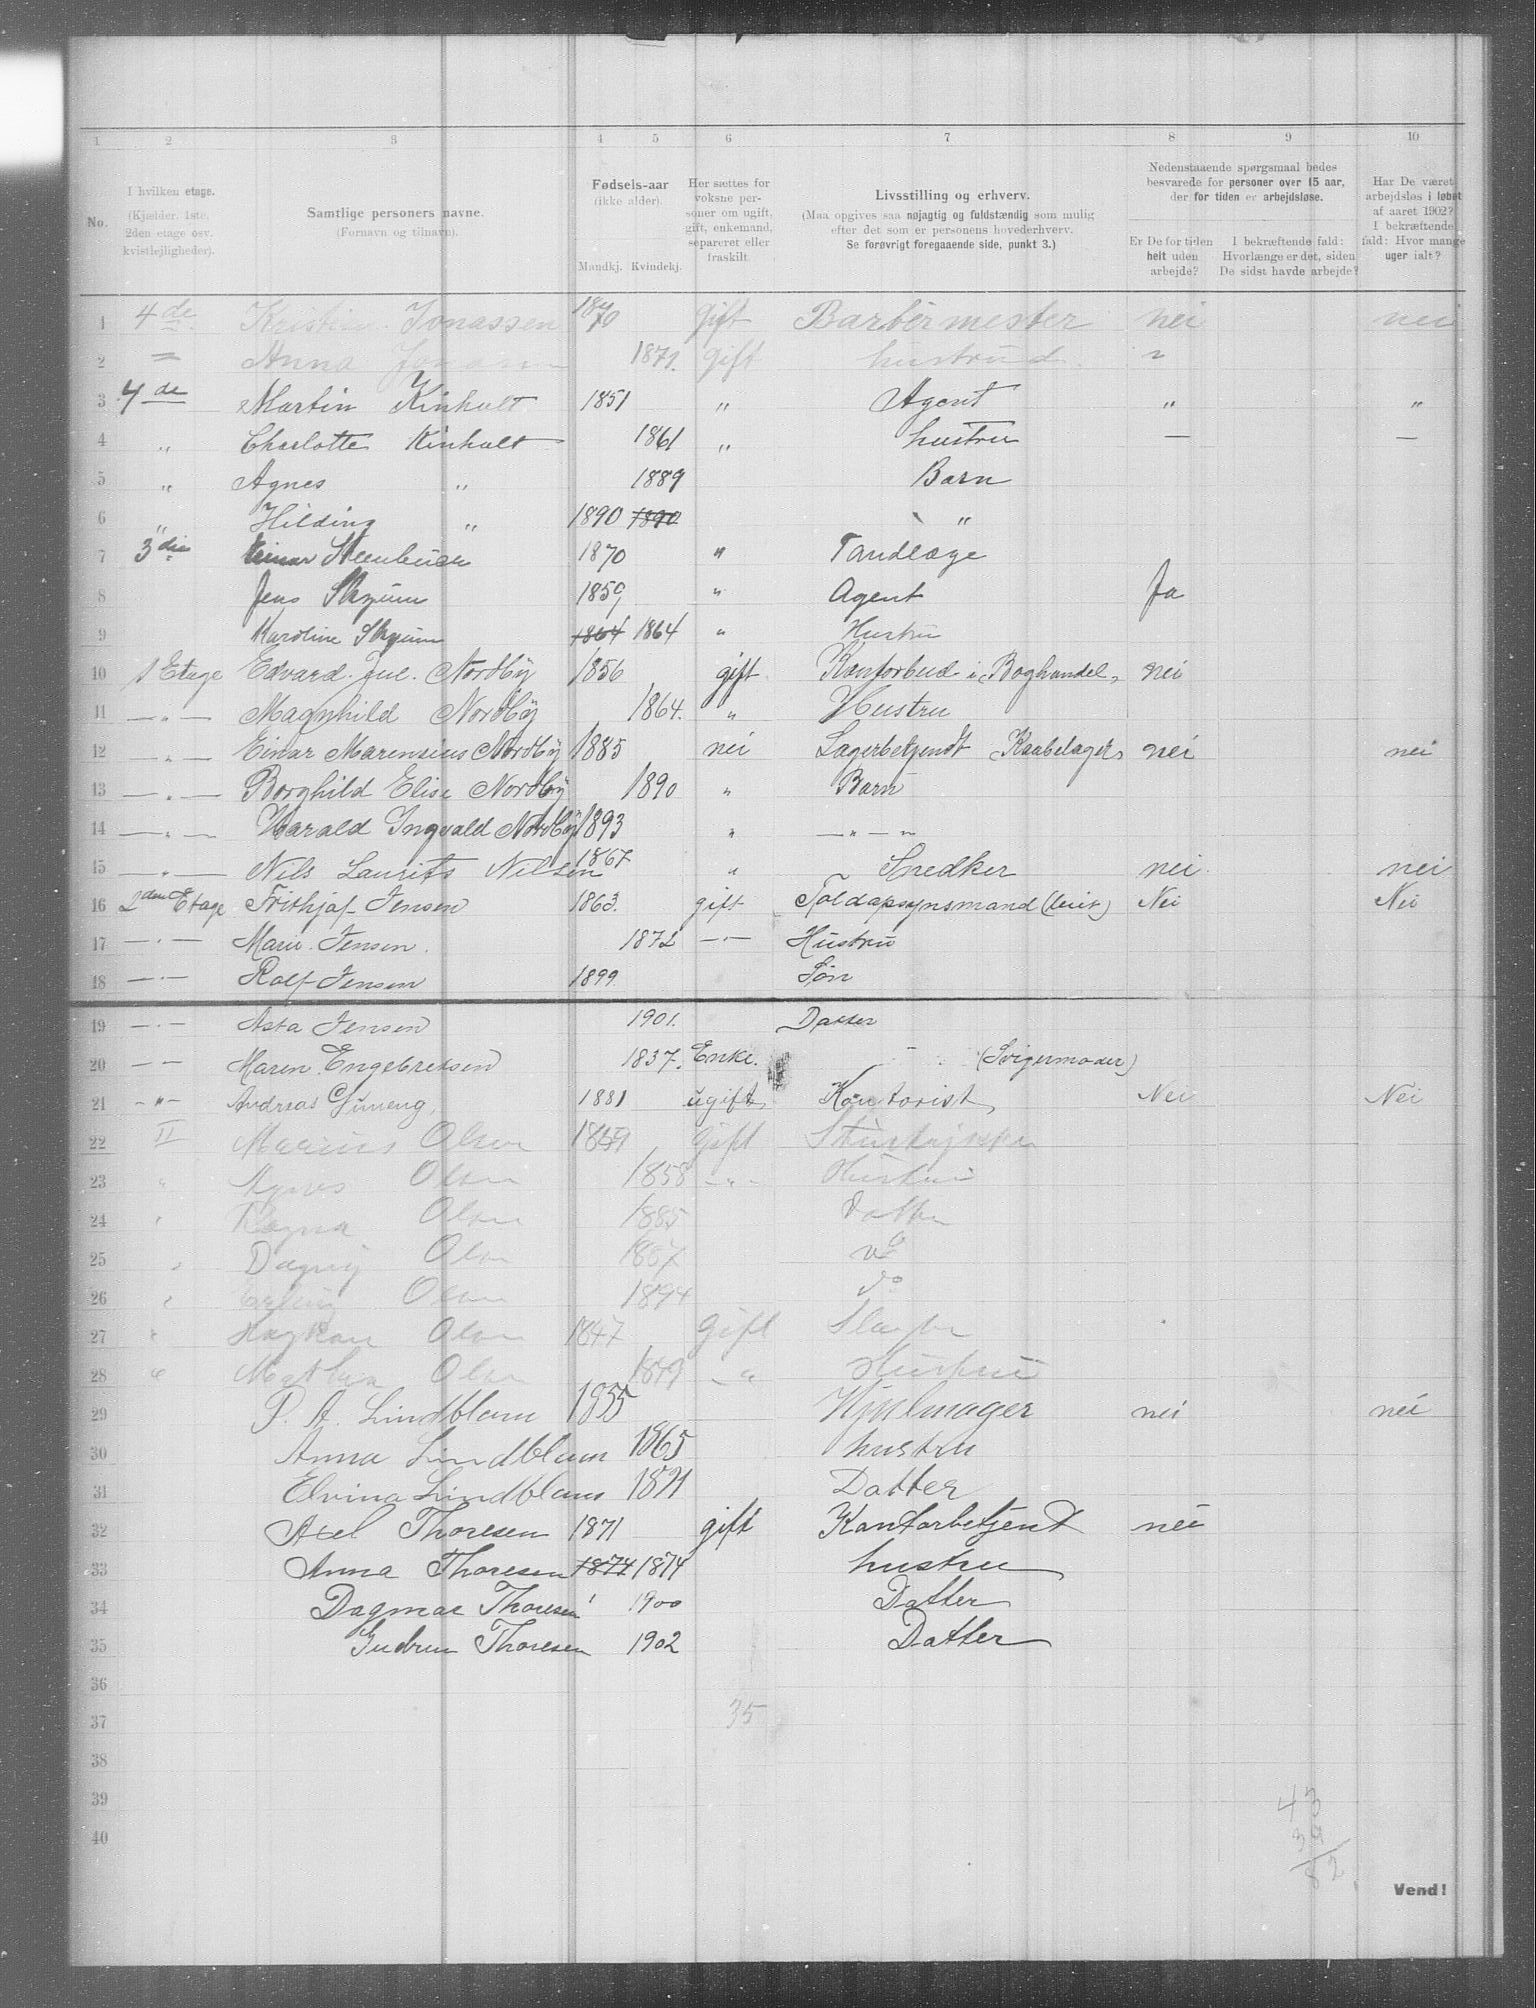 1 2 3 4 5 6 7 8 9 10
No. I hvilken etage. (Kjælder. 1ste. 2den etage osv. kvistlejligheder). Samtlige personers navne. (Fornavn og tilnavn). Fødsels-aar (ikke alder). Mandkj. Kvindekj. Her sættes for voksne personer om ugift, gift, enkemand, separeret eller fraskilt Livsstilling og erhverv. (Maa opgives saa nøjagtig og fuldstændig som mulig efter det som er personens hovederhverv. Se forøvrigt foregaaende side, punkt 3.) Nedenstaaende spørgsmaal bedes besvarede for personer over 15 aar, der for tiden er arbejdsløse. Er De for tiden helt uden arbejde? I bekræftende fald: Hvorlænge er det, siden De sidst havde arbejde? Har De været arbejdsløs i løbet af aaret 1902? I bekræftende fald: Hvor mange uger ialt?
1 4de Kristian Jonassen 1870 gift Barbermester nei nei
2 " Anna 1871. gift hustru
3 4de Martin Kinhult 1851 " Agent " "
4 " Charlotte Kinhult 1861 " hustru — —
5 " Agnes " 1889 Barn
6 " Hilding " 1890 1890 "
7 3die Einar Steenbuch 1870 " Tandlæge
8 Jens Skyum 1859 " Agent Ja
9 Karoline Skyum 1864 1864 " Hustru
10 1 Etage Edvard. Jul. Nordby 1856 gift Kontorbud i Boghandel, nei
11 — " — Magnhild Nordby 1864. " Hustru
12 — " — Einar Marensius Nordby 1885 nei Lagerbetjendt nei nei
13 — " — Borghild Elise Nordby 1890 " Barn
14 — " — Harald Ingvald Nordby 1893 " — " — "
15 — " — Nils Laurits Nilsen 1867 " Snedker nei nei
16 2den Etage Frithjof Jensen 1863. gift Toldopsynsmand Nei Nei
17 — " — Marie Jensen. 1872 — " — Hustru
18 — " — Rolf Jensen 1899. Søn
19 — " — Asta Jensen 1901. Datter
20 — " — Maren Engebretsen 1837. Enke. " (Svigermoder)
21 — " — Andreas 1881 ugift, Kontorist Nei Nei
22 II Marius Olsen 1859 gift
23 " Agnes Olsen 1858 — " — Hustru
24 " Ragna Olsen 1885 Datter
25 " Dagny Olsen 1887 do
26 " Erling Olsen 1894 do
27 " Haakon Olsen 1847 Gift
28 " Mathea Olsen 1849 — " Hustru
29 P. A. Lindblom 1855 Hjulmager nei nei
30 Anna Lindblom 1865 hustru
31 Elvina Lindblom 1891 Datter
32 Axel Thoresen 1871 gift Kontorbetjent nei
33 Anna Thoresen 1874 1874 hustru
34 Dagmar Thoresen 1900 Datter
35 Gudrun Thoresen 1902 Datter
36
37 35
38
39 43
40 39
82
Vend!